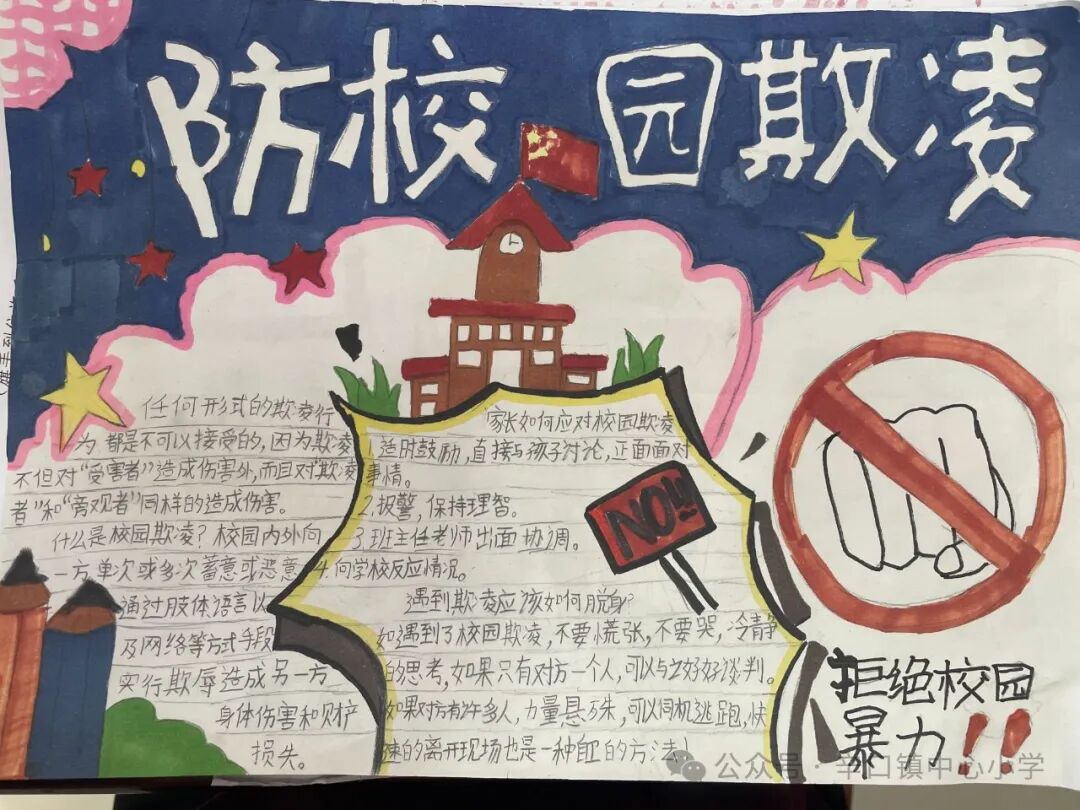 防校园欺凌
任何形式的欺凌行
为都是不可以接受的,因为欺凌
不但对“受害者”造成伤害外,而且对“欺凌
者”和“旁观者”同样的造成伤害。
什么是校园欺凌?校园内外向
一方单次或多次蓄意或恶意
通过肢体语言以
及网络等方式手段
实行欺辱造成另一方
身体伤害和财产
损失。
家长如何应对校园欺凌
1.适时鼓励,直接与孩子讨论,正面面对
事情。
2.报警,保持理智。
3.班主任老师出面协调。
4.向学校反应情况。
NO!!
遇到欺凌应该如何脱身?
如遇到了校园欺凌,不要慌张,不要哭,冷静
的思考,如果只有对方一个人,可以与之好好谈判。
如果对方有许多人,力量悬殊,可以伺机逃跑,快
速的离开现场也是一种的方法!
拒绝校园
暴力!!
公众号·辛口镇中心小学